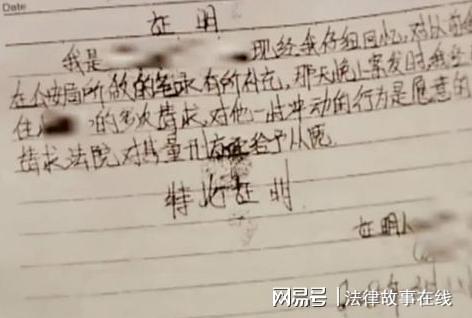 Date
证明
我是 现经我仔细回忆，对从前
在公安局所做的笔录有所补充，那天晚上案发时我经
住 的多次请求，对他一时冲动的行为是愿意的
请求法院对其量刑 给予从宽
特此证明
证明人
网易号 | 法律故事在线